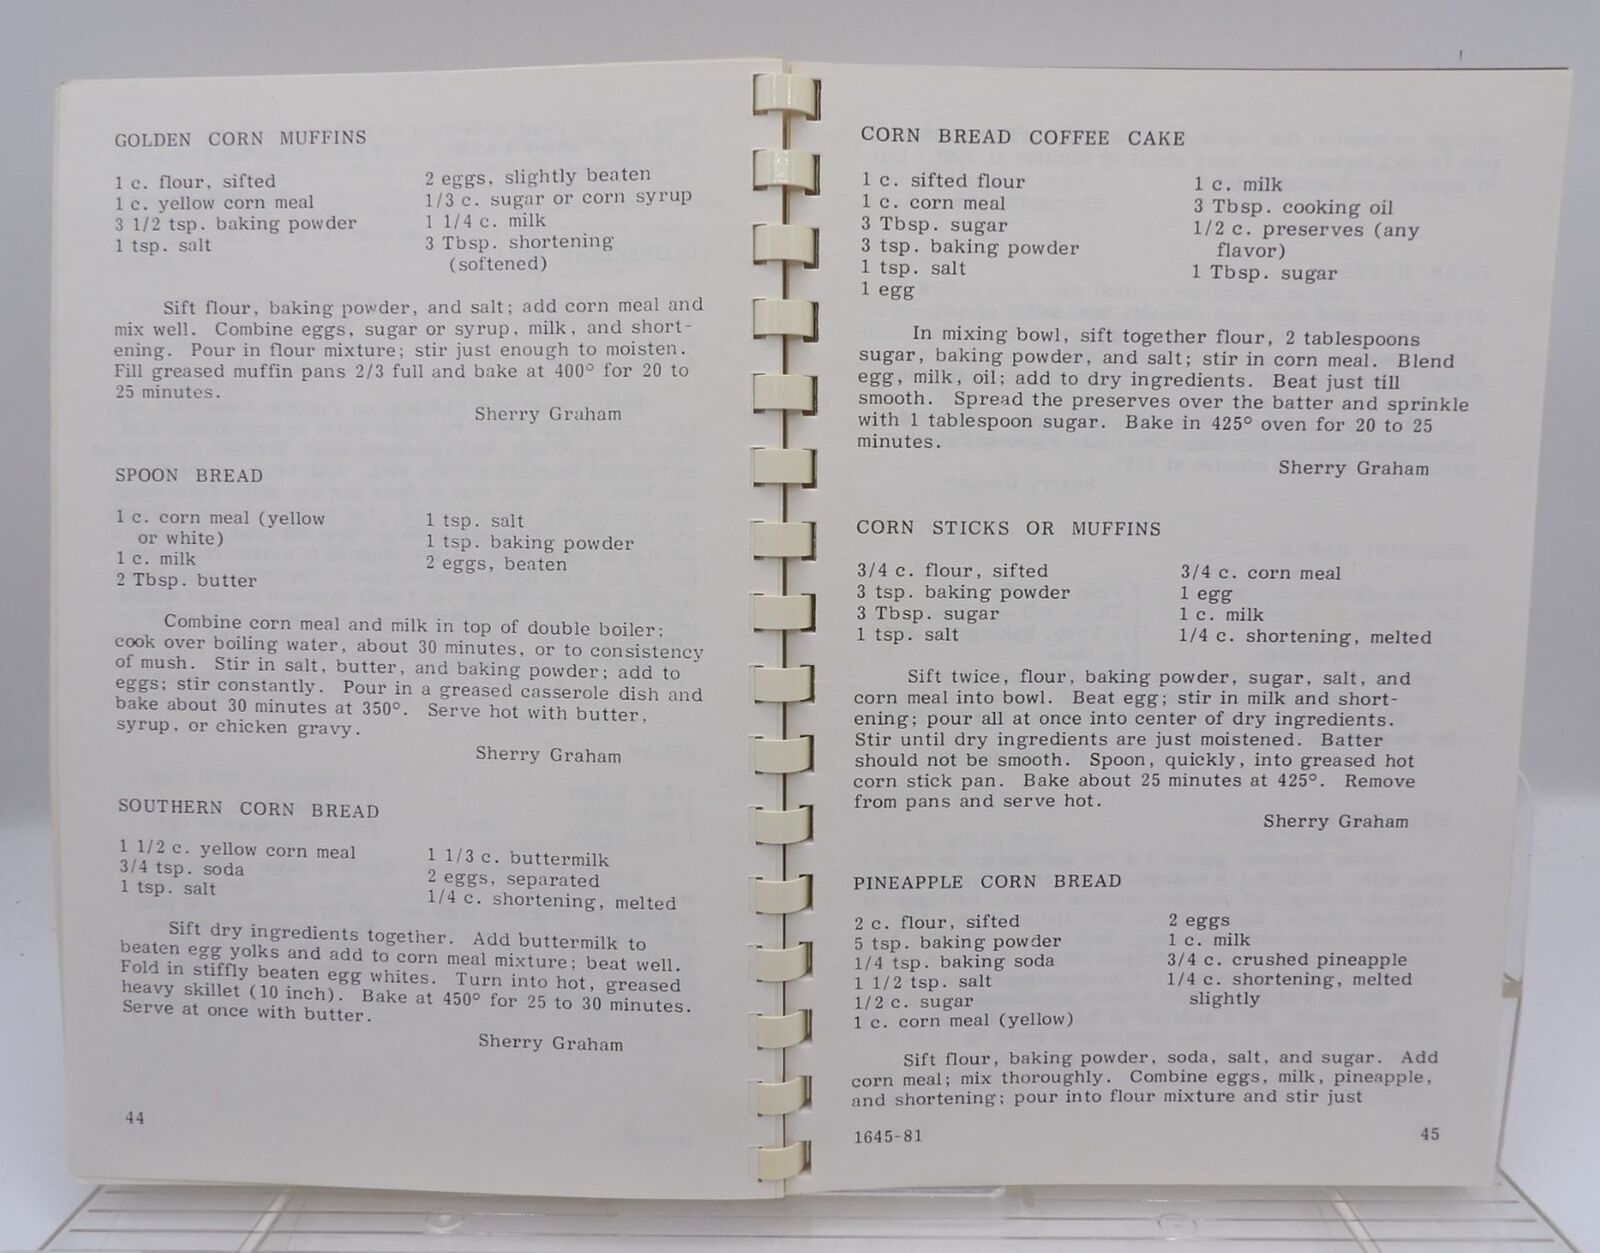 GOLDEN CORN MUFFINS
1 c. flour, sifted
1 c. yellow corn meal
3 1/2 tsp. baking powder
1 tsp. salt
2 eggs, slightly beaten
1/3 c. sugar or corn syrup
1 1/4 c. milk
3 Tbsp. shortening
(softened)
Sift flour, baking powder, and salt; add corn meal and
mix well. Combine eggs, sugar or syrup, milk, and short-
ening. Pour in flour mixture; stir just enough to moisten.
Fill greased muffin pans 2/3 full and bake at 400° for 20 to
25 minutes.
Sherry Graham
SPOON BREAD
1 c. corn meal (yellow
or white)
1 c. milk
2 Tbsp. butter
1 tsp. salt
1 tsp. baking powder
2 eggs, beaten
Combine corn meal and milk in top of double boiler;
cook over boiling water, about 30 minutes, or to consistency
of mush. Stir in salt, butter, and baking powder; add to
eggs; stir constantly. Pour in a greased casserole dish and
bake about 30 minutes at 350°. Serve hot with butter,
syrup, or chicken gravy.
Sherry Graham
SOUTHERN CORN BREAD
1 1/2 c. yellow corn meal
3/4 tsp. soda
1 tsp. salt
1 1/3 c. buttermilk
2 eggs, separated
1/4 c. shortening, melted
Sift dry ingredients together. Add buttermilk to
beaten egg yolks and add to corn meal mixture; beat well.
Fold in stiffly beaten egg whites. Turn into hot, greased
heavy skillet (10 inch). Bake at 450° for 25 to 30 minutes.
Serve at once with butter.
Sherry Graham
44
CORN BREAD COFFEE CAKE
1 c. sifted flour
1 c. corn meal
3 Tbsp. sugar
3 tsp. baking powder
1 tsp. salt
1 egg
1 c. milk
3 Tbsp. cooking oil
1/2 c. preserves (any
flavor)
1 Tbsp. sugar
In mixing bowl, sift together flour, 2 tablespoons
sugar, baking powder, and salt; stir in corn meal. Blend
egg, milk, oil; add to dry ingredients. Beat just till
smooth. Spread the preserves over the batter and sprinkle
with 1 tablespoon sugar. Bake in 425° oven for 20 to 25
minutes.
Sherry Graham
CORN STICKS OR MUFFINS
3/4 c. flour, sifted
3 tsp. baking powder
3 Tbsp. sugar
1 tsp. salt
3/4 c. corn meal
1 egg
1 c. milk
1/4 c. shortening, melted
Sift twice, flour, baking powder, sugar, salt, and
corn meal into bowl. Beat egg; stir in milk and short-
ening; pour all at once into center of dry ingredients.
Stir until dry ingredients are just moistened. Batter
should not be smooth. Spoon, quickly, into greased hot
corn stick pan. Bake about 25 minutes at 425°. Remove
from pans and serve hot.
Sherry Graham
PINEAPPLE CORN BREAD
2 c. flour, sifted
5 tsp. baking powder
1/4 tsp. baking soda
1 1/2 tsp. salt
1/2 c. sugar
1 c. corn meal (yellow)
2 eggs
1 c. milk
3/4 c. crushed pineapple
1/4 c. shortening, melted
slightly
Sift flour, baking powder, soda, salt, and sugar. Add
corn meal; mix thoroughly. Combine eggs, milk, pineapple,
and shortening; pour into flour mixture and stir just
1645-81
45